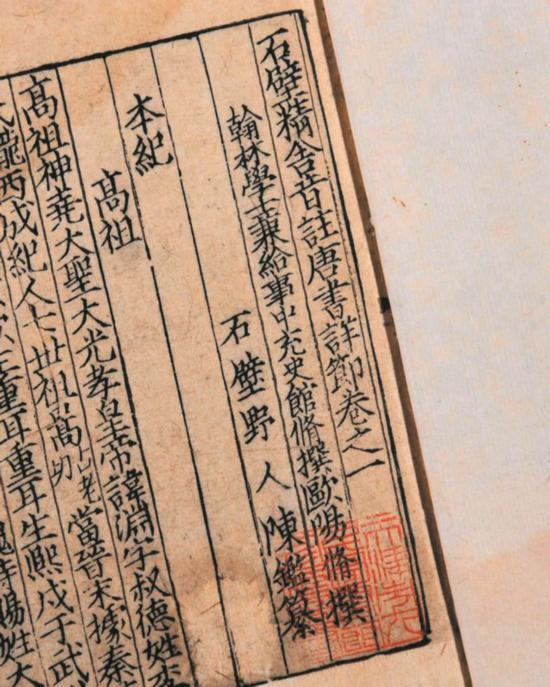 石壁精舍音註唐書詳節卷之一
翰林學士兼給事中充史館脩撰歐陽脩撰
石壁野人陳鑑纂
本紀
高祖
高祖神堯大聖大光孝皇帝諱淵字叔德姓李
隴西成紀人七世祖暠 當晉末據秦
重耳重耳生熙